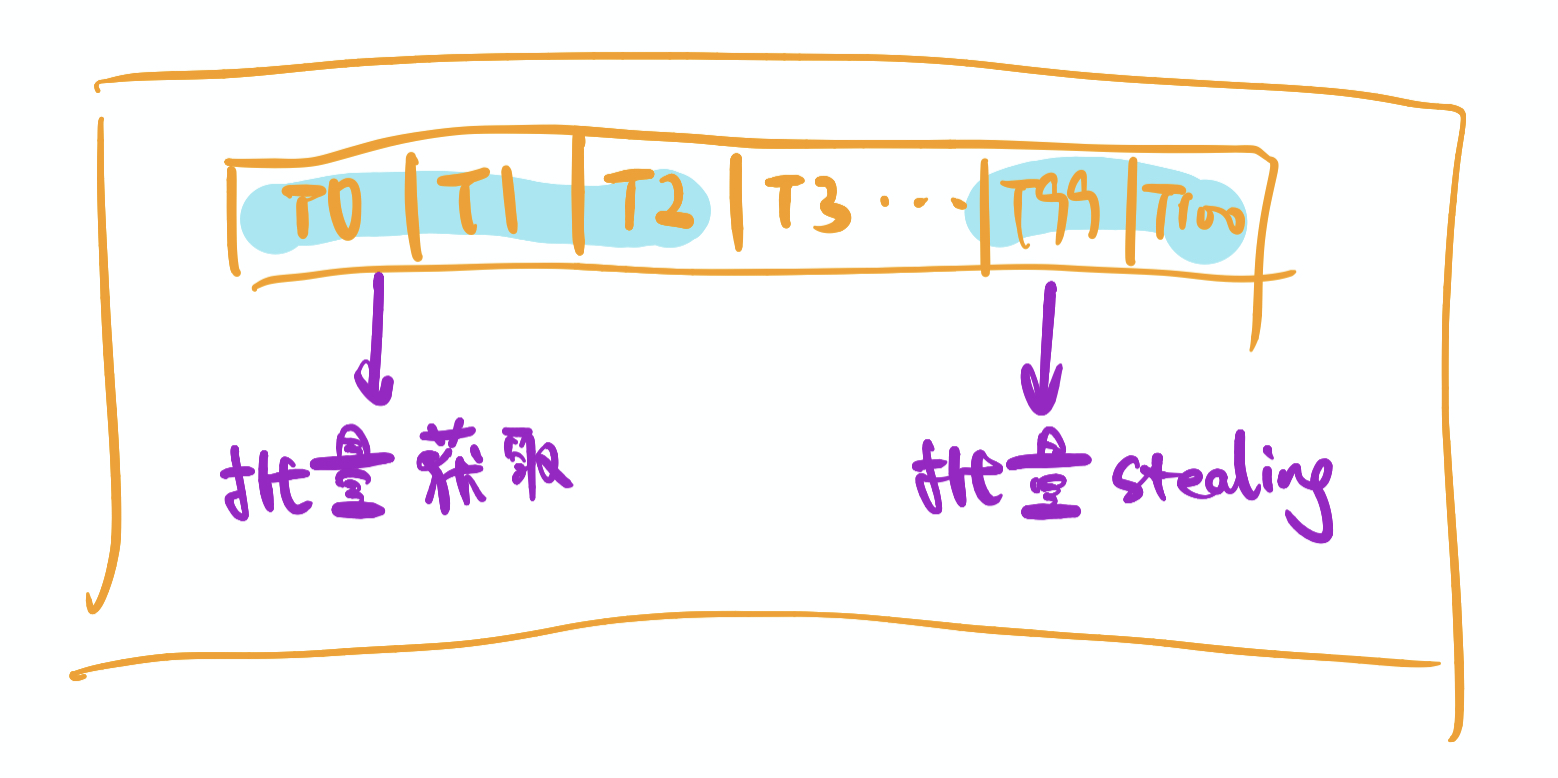 T0 T1 T2 T3 ... T99 T100
批量获取 批量stealing